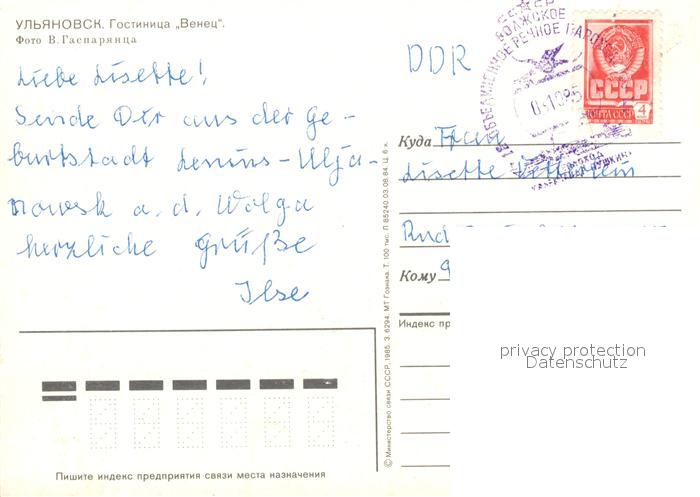 УЛЬЯНОВСК. Гостиница „Венец".
Фото В. Гаспарянца
Liebe Lisette!
Sende Dir aus der Ge-
burtstadt Lenins-Ulja-
nowsk a. d. Wolga
herzliche Grüße
Ilse
Пишите индекс предприятия связи места назначения
© Министерство связи СССР, 1985. З. 6294. МТ Гознака. Т. 100 тыс. Л 85240.03.08.84. Ц. 6 к.
DDR
СССР
ПОЧТА СССР 4
ВОЛЖСКОЕ
ОБЪЕДИНЕННОЕ РЕЧНОЕ ПАРОХОД
Куда Frau
Lisette
Rud
Кому 9
Индекс пр
privacy protection
Datenschutz